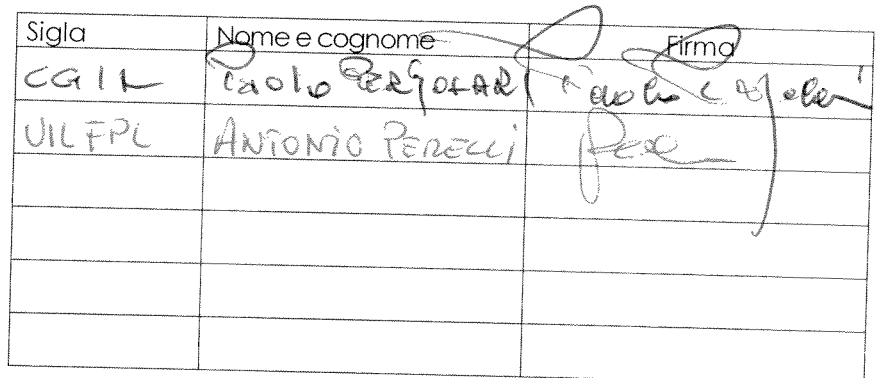 Sigla Nome e cognome Firma
CGIL Paolo PERGOLARI
UIL FPL ANTONIO PERELLI